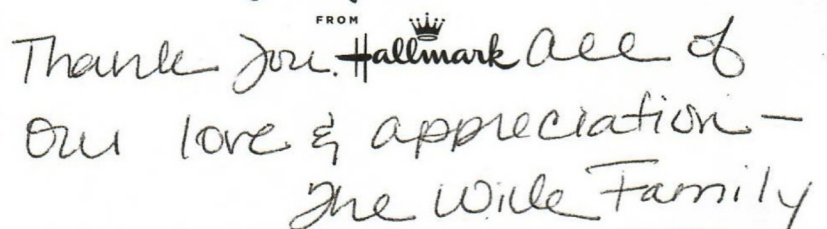 FROM
Thank you. Hallmark all of
our love & appreciation —
The Wille Family